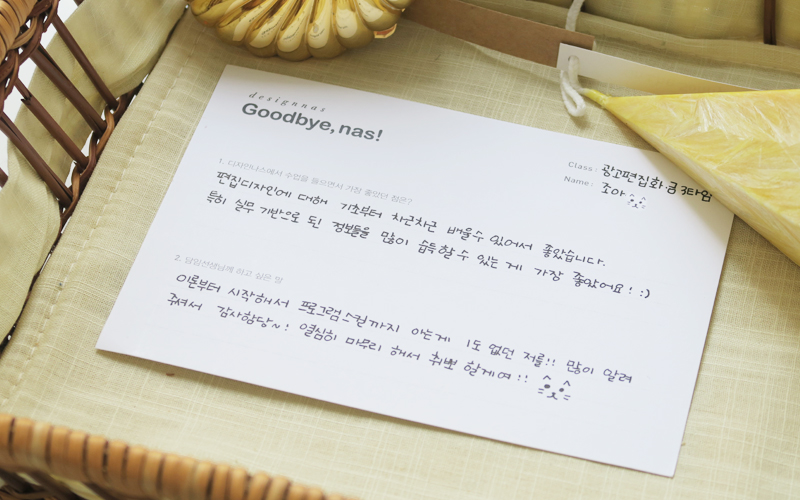 designnas
Goodbye, nas!
Class : 광고편집화·금 3타임
Name : 조아
1. 디자인나스에서 수업을 들으면서 가장 좋았던 점은?
편집디자인에 대해 기초부터 차근차근 배울수 있어서 좋았습니다.
특히 실무 기반으로 된 정보들을 많이 습득할 수 있는 게 가장 좋았어요! :)
2. 담임선생님께 하고 싶은 말
이론부터 시작해서 프로그램스킬까지 아는게 1도 없던 저를!! 많이 알려
주셔서 감사함당~! 열심히 마무리 해서 취뽀 할게여!!